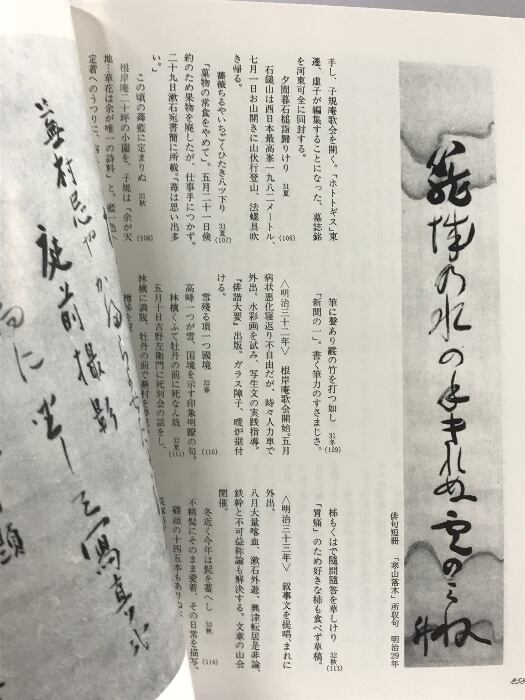 手し、子規庵歌会を開く。「ホトトギス」東
遷、虚子が編集することになった、墓誌銘
を河東可全に同封する。
夕間暮石槌詣歸りけり 31夏
(106)
石鎚山は西日本最高峯一九八二メートル、
七月一日お山開きに山伏行登山、法螺貝吹
き帰る。
薔薇ちるやいちごくひたき八ツ下り 31夏
(107)
「菓物の常食をやめて」。五月二十一日倹
約のため果物を廃したが、仕事手につかず。
二十九日漱石宛書簡に所載。苺は思い出多
い。」
この頃の蕣藍に定まりぬ 31秋
(108)
根岸庵二十坪の小園を、子規は「余が天
地…草花は余が唯一の詩料」と。
定着へのうつりに、
筆に聲あり霰の竹を打つ如し 31冬
(109)
「新聞の一」。書く筆力のすさまじさ。
〈明治三十二年〉 根岸庵歌会開始。五月
病状悪化寝返り不自由だが、時々人力車で
外出。水彩画を試み、写生文の実践指導。
『俳諧大要』出版。ガラス障子、暖炉据付
ける。
雪残る頂一つ國境 32春
(110)
高峰一つが雪、国境を示す印象明瞭の句。
林檎くふて牡丹の前に死なん哉 32夏
(111)
五月十日吉野左衛門に死別会の話をし、
林檎に満腹、牡丹の前で
柿もくはで随問随答を草しけり 32秋
(113)
「胃痛」のため好きな柿も食べず草稿。
〈明治三十三年〉 叙事文を提唱、まれに
外出。
八月大量喀血、漱石外遊、興津転居是非論、
鉄幹と不可並称論も解決する。文章の山会
開催。
冬近く今年は髭を蓄へし 33秋
(114)
不精髭にそのまま愛着、その日常を描写。
鶏頭の十四五本もありぬべし
俳句短冊 「寒山落木」所収句 明治29年
籠城の水の手きれぬ雲のみね
升
蕪村忌や
庭前撮影
寫真